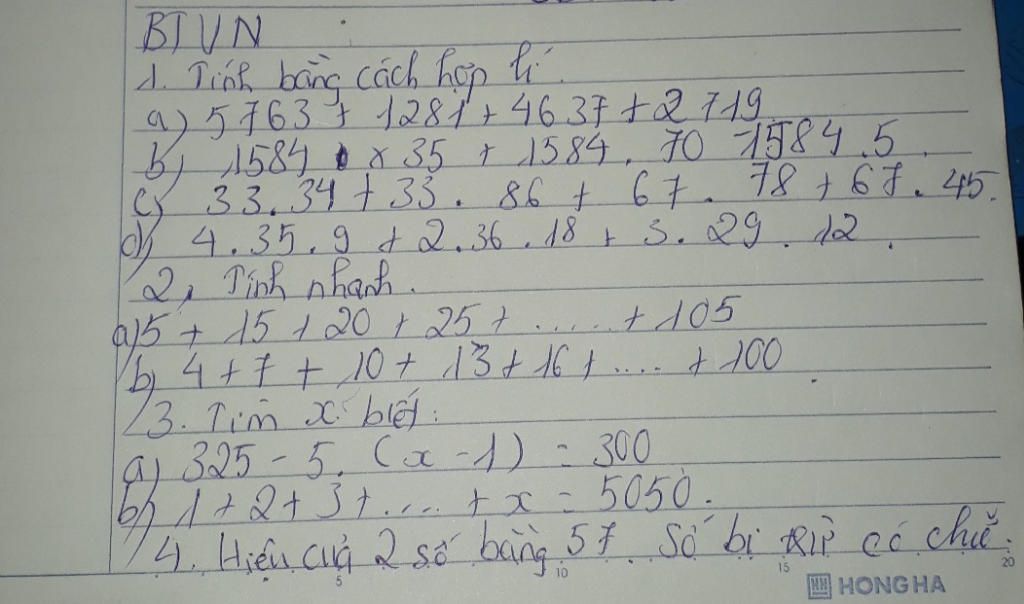 BTVN
1. Tính bằng cách hợp lí.
a) 5763 + 1281 + 4637 + 2719
b) 1584 x 35 + 1584 . 70 - 1584 . 5.
c) 33 . 34 + 33 . 86 + 67 . 78 + 67 . 45.
d) 4 . 35 . 9 + 2 . 36 . 18 + 3 . 29 . 12.
2, Tính nhanh.
a) 5 + 15 + 20 + 25 + ..... + 105
b) 4 + 7 + 10 + 13 + 16 + .... + 100
3. Tìm x biết:
a) 325 - 5. (x - 1) = 300
b) 1 + 2 + 3 + .... + x = 5050.
4. Hiệu của 2 số bằng 57. Số bị có chữ
5 10 15 20
HONG HA